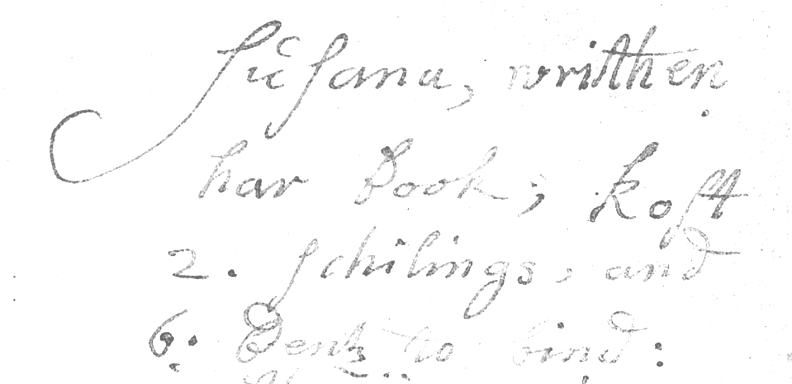 Sŭſana, writthen
har Book; koſtt
2. ſchilings, and
6. Pentz to bind: